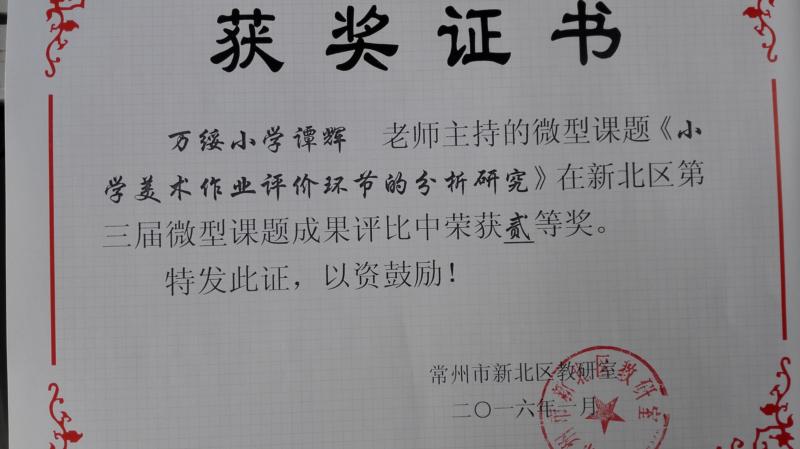 获奖证书
万绥小学谭辉 老师主持的微型课题《小
学美术作业评价环节的分析研究》在新北区第
三届微型课题成果评比中荣获贰等奖。
特发此证，以资鼓励！
常州市新北区教研室
二〇一六年一月
常州市新北区教研室